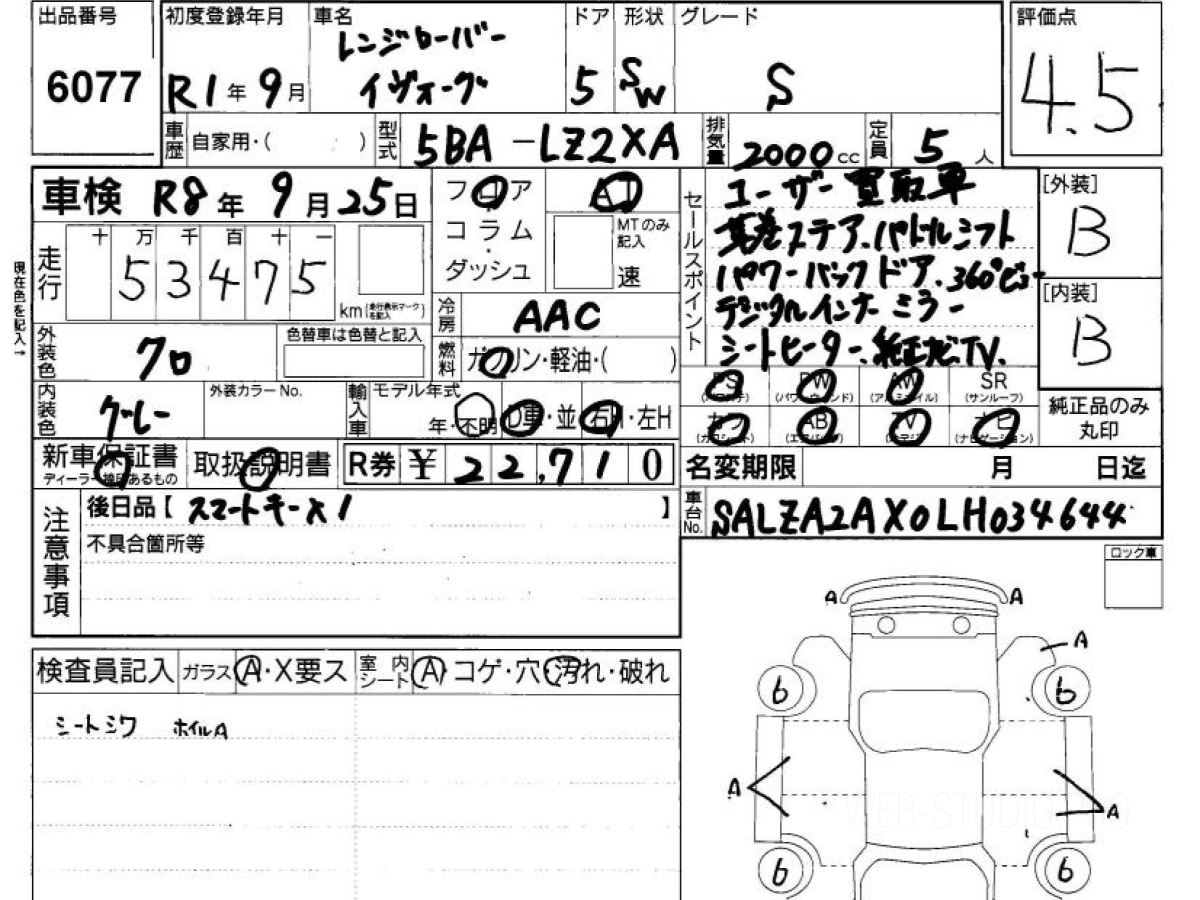 出品番号
6077
初度登録年月
R1年9月
車名
レンジローバー
イヴォーグ
ドア
5
形状
SW
グレード
S
評価点
4.5
車歴
自家用・( )
型式
5BA-LZ2XA
排気量
2000cc
定員
5人
車検 R8年9月25日
フロア
・
コラム
・
ダッシュ
AT
MTのみ
記入
速
セールスポイント
ユーザー買取車
革巻ステア.パドルシフト
パワーバックドア.360°ビュー
デジタルインナーミラー
シートヒーター.純正ナビ.TV.
[外装]
B
[内装]
B
現在色を記入→
走行
十 万 千 百 十 一
53475
km (走行表示マークを記入)
冷房
AAC
外装色
クロ
色替車は色替と記入
燃料
ガソリン・軽油・( )
PS
(パワステ)
PW
(パワーウィンド)
AW
(アルミホイル)
SR
(サンルーフ)
カワ
(カワシート)
AB
(エアバッグ)
TV
ナビ
(ナビゲーション)
純正品のみ
丸印
内装色
グレー
外装カラーNo.
輸入車
モデル年式
年・不明
D車・並
右H・左H
新車保証書
ディーラー検印あるもの
取扱説明書
R券 ¥ 22,710
名変期限 月 日迄
車台No.
SALZA2AX0LH034644
注意事項
後日品【 スマートキーx1 】
不具合箇所等
ロック車
検査員記入
ガラス A・X要ス
室内シート A・コゲ・穴・汚れ・破れ
シートシワ ホイルA
A A
A
6 6
A A
6 6
WEB-STUDIO